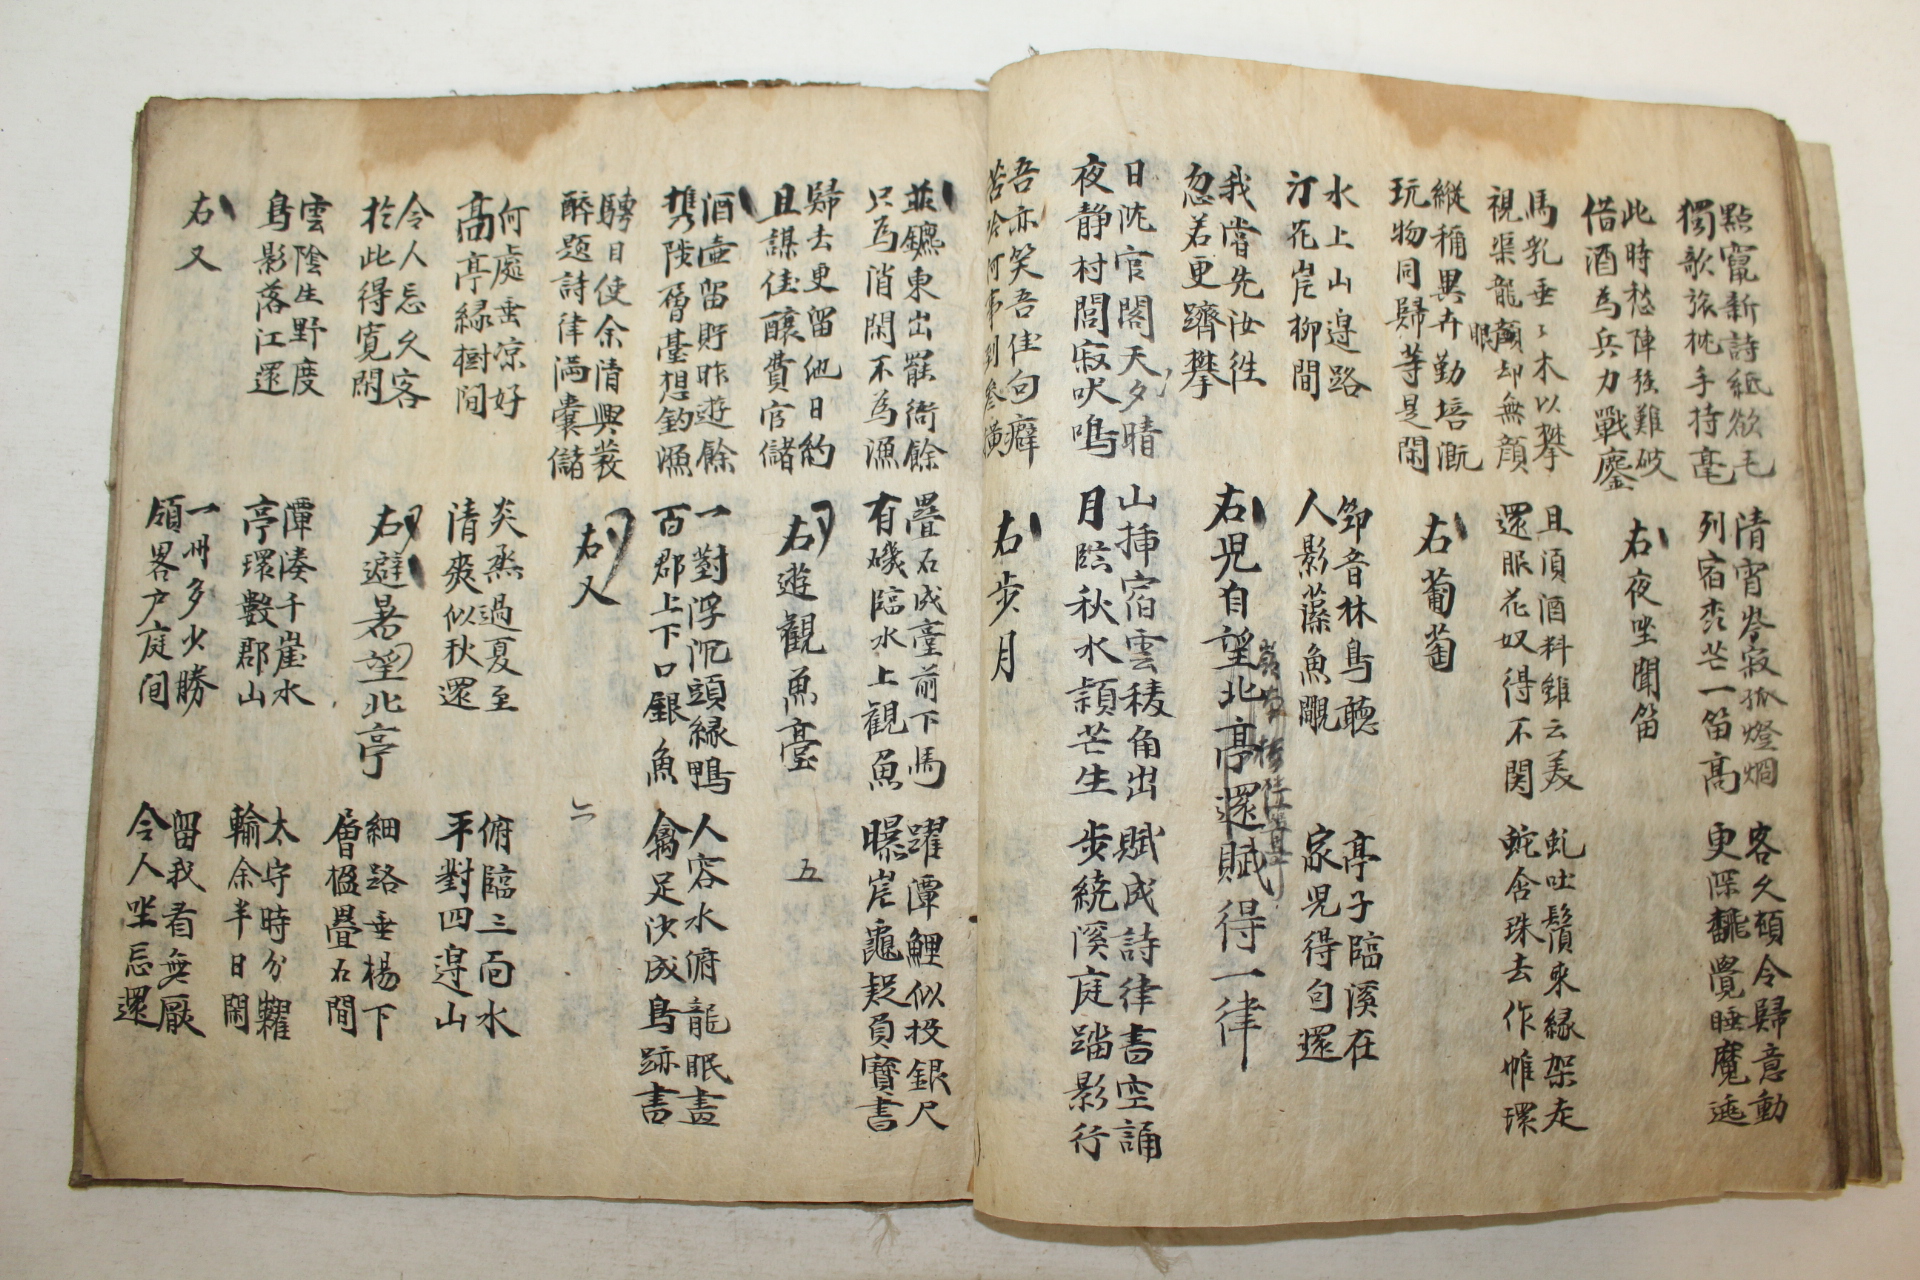 點竄新詩紙欲毛
獨歌旅枕手持毫
清宵岑寂孤燈烱
列宿蒼芒一笛高
客久頓令歸意動
更深飜覺睡魔逃
此時愁陣强難破
借酒為兵力戰鏖
右夜坐聞笛
馬乳垂〻木以攀
視渠龍眼却無顔
且須酒料雖云美
還眼花奴得不関
虬吐鬚來緣架走
蛇含珠去作帷環
縱稱異卉勤培漑
玩物同歸等是閑
右葡萄
水上山邉路
汀花岸柳間
筇音林鳥聽
人影藻魚覵
亭子臨溪在
家児得句還
我嘗先汝徃
忽若更躋攀
右児自望北亭還賦得一律
日沈官閣天夕晴
夜静村閭寂吠鳴
山揷宿雲稜角出
月臨秋水潁芒生
賦成詩律書空誦
步繞溪庭踏影行
吾亦笑吾佳句癖
苦吟何事到參横
右步月
並鑣東出罷衙餘
只為消閑不為漁
疊石成臺前下馬
有磯臨水上觀魚
躍潭鯉似投銀尺
曝岸龜疑負寶書
歸去更留他日約
且謀佳釀費官儲
右遊觀魚臺
五
酒壷留貯昨遊餘
携陟層臺想釣漁
一對浮沉頭緑鴨
百郡上下口銀魚
人容水俯龍眠畫
禽足沙成鳥跡書
騁目使余清興裝
醉題詩律滿囊儲
右又
何處垂凉好
高亭緑樹間
炎烝過夏至
清爽似秋還
俯臨三面水
平對四邉山
令人忘久客
於此得寛閑
右避暑望北亭
細路垂楊下
層楹疊石間
雲陰生野度
鳥影落江還
潭湊千崖水
亭環數郡山
太守時分糶
輸余半日閑
右又
一州多少勝
領畧户庭间
留我看無厭
令人坐忘還